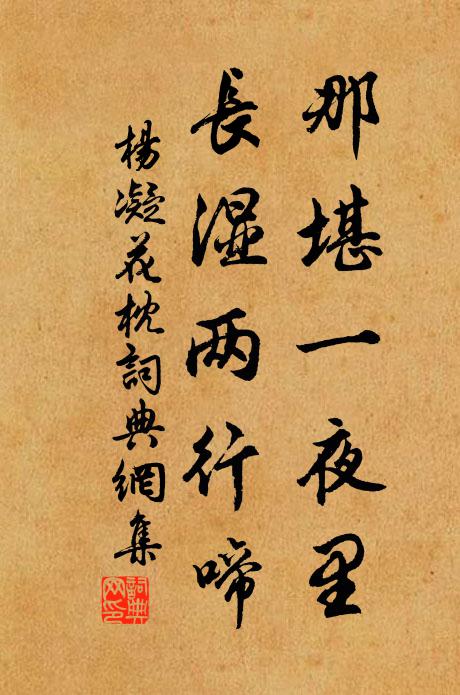 那堪一夜里
長湿两行啼
楊凝花枕詞典網集
詞典网印